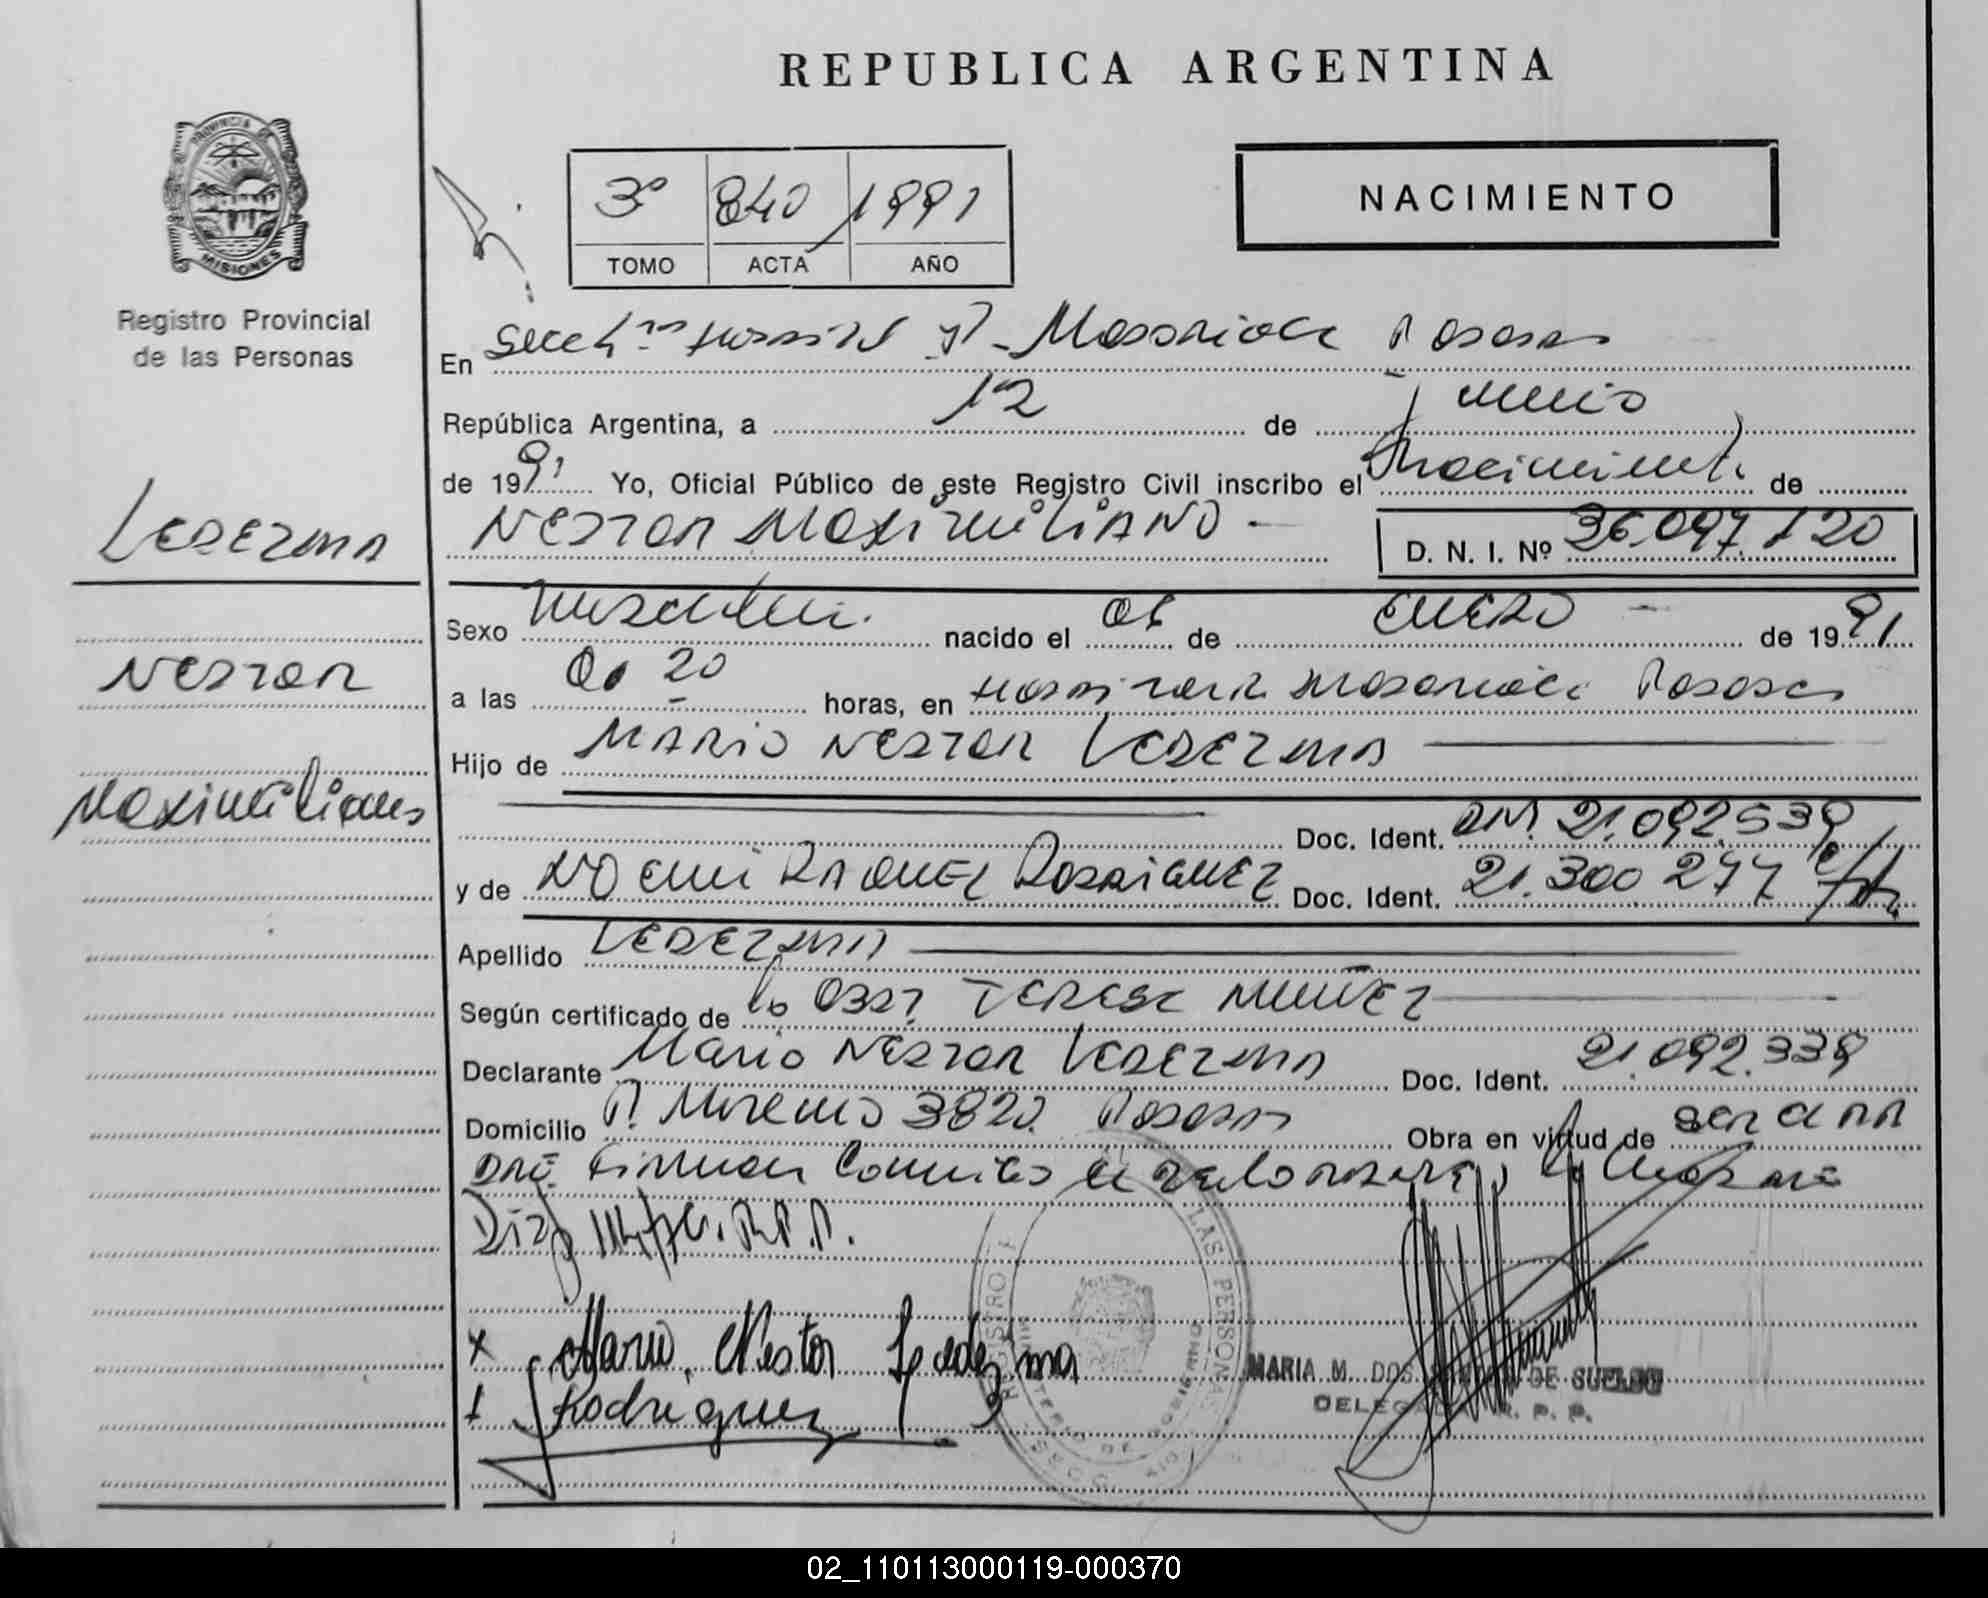 REPUBLICA ARGENTINA
PROVINCIA DE
MISIONES
Registro Provincial
de las Personas
3º 840 1991
TOMO ACTA AÑO
NACIMIENTO
En
República Argentina, a 12 de Junio
de 1991 Yo, Oficial Público de este Registro Civil inscribo el Nacimiento de
LEDEZMA
NESTOR MAXIMILIANO -
D. N. I. Nº 36.097.120
Sexo Masculino. nacido el 06 de ENERO - de 1991
NESTOR
a las 00 20 horas, en Posadas
Hijo de MARIO NESTOR LEDEZMA
Maximiliano
Doc. Ident. DNI. 21.092.339
y de NOEMI RAQUEL RODRIGUEZ Doc. Ident. 21.300 277
Apellido LEDEZMA
Según certificado de la Obst. TERESA NUÑEZ
Declarante MARIO NESTOR LEDEZMA Doc. Ident. 21.092.339
Domicilio P. Moreno 3820. Posadas Obra en virtud de ser
Firman la Madre
R.P.P.
x Mario Nestor Ledezma
x Rodriguez
REGISTRO LAS PERSONAS
MINISTERIO DE GOBIERNO
MARIA M. DOS DE SUELDO
DELEGADA R. P. P.
02_110113000119-000370